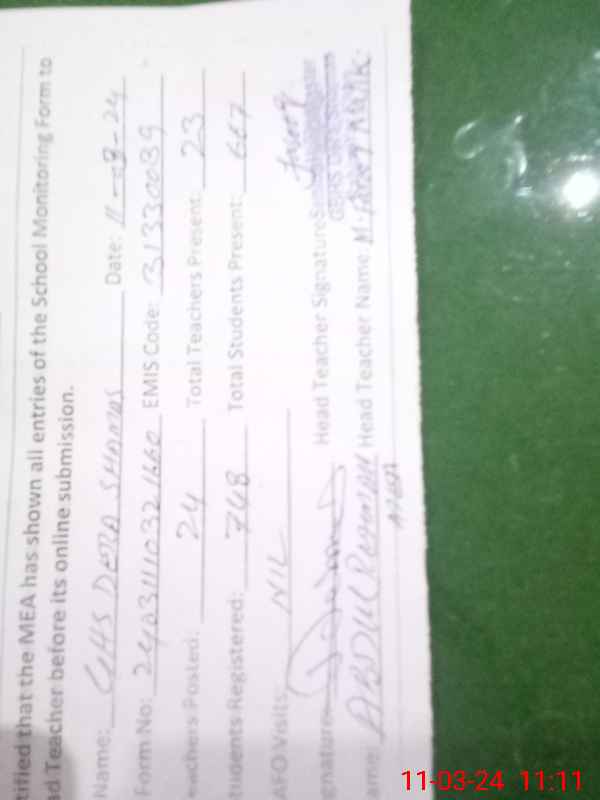 tified that the MEA has shown all entries of the School Monitoring Form to
ad Teacher before its online submission.
Name: GHS DERA SHAMAS Date: 11-03-24
Form No: 24031110321660 EMIS Code: 31330039
eachers Posted: 24 Total Teachers Present: 23
tudents Registered: 748 Total Students Present: 667
AFO Visits: NIL
gnature Head Teacher Signature
ame: ABDUL REHMAN Head Teacher Name:
11-03-24 11:11